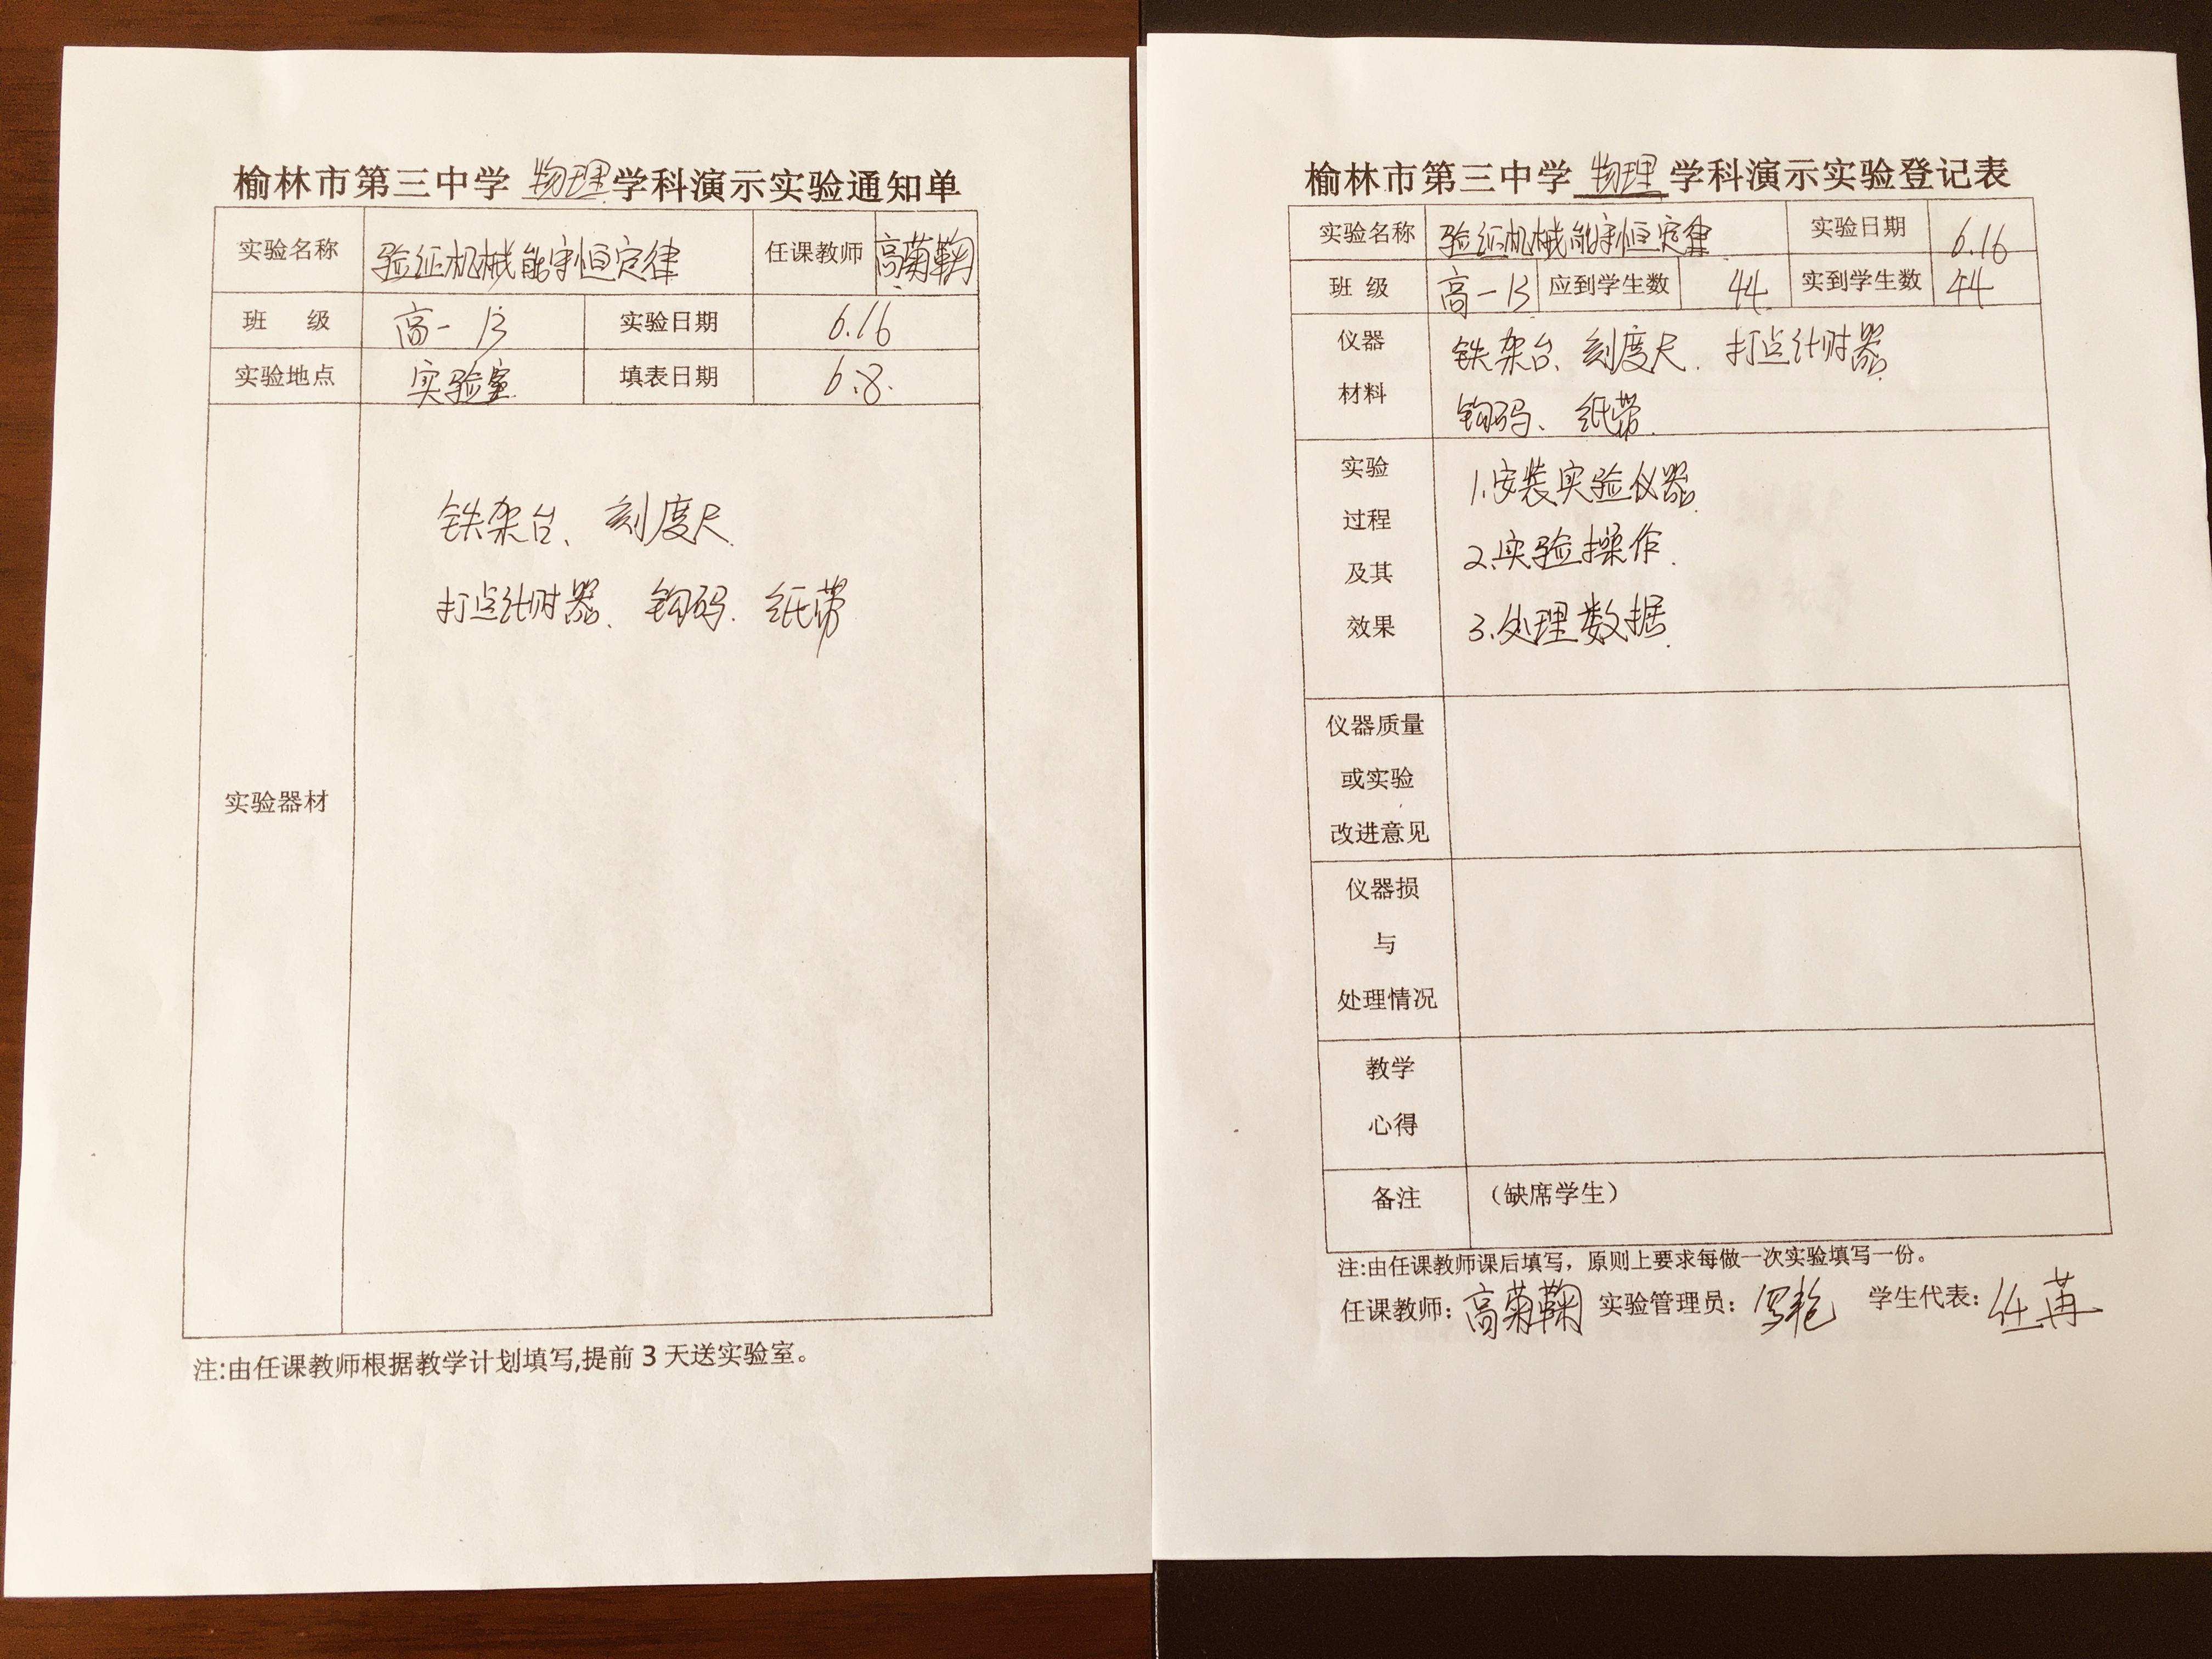 榆林市第三中学 物理 学科演示实验通知单
实验名称 验证机械能守恒定律 任课教师 高菊鞠
班 级 高一 13 实验日期 6.16
实验地点 实验室 填表日期 6.8.
实验器材
铁架台、刻度尺.
打点计时器、钩码.纸带
注:由任课教师根据教学计划填写,提前 3 天送实验室。
榆林市第三中学 物理 学科演示实验登记表
实验名称 验证机械能守恒定律 实验日期 6.16
班 级 高一 13 应到学生数 44 实到学生数 44
仪器
材料
铁架台、刻度尺.打点计时器.
钩码、纸带.
实验
过程
及其
效果
1.安装实验仪器.
2.实验操作.
3.处理数据.
仪器质量
或实验
改进意见
仪器损
与
处理情况
教学
心得
备注 （缺席学生）
注:由任课教师课后填写，原则上要求每做一次实验填写一份。
任课教师: 高菊鞠 实验管理员: 学生代表: 任苒